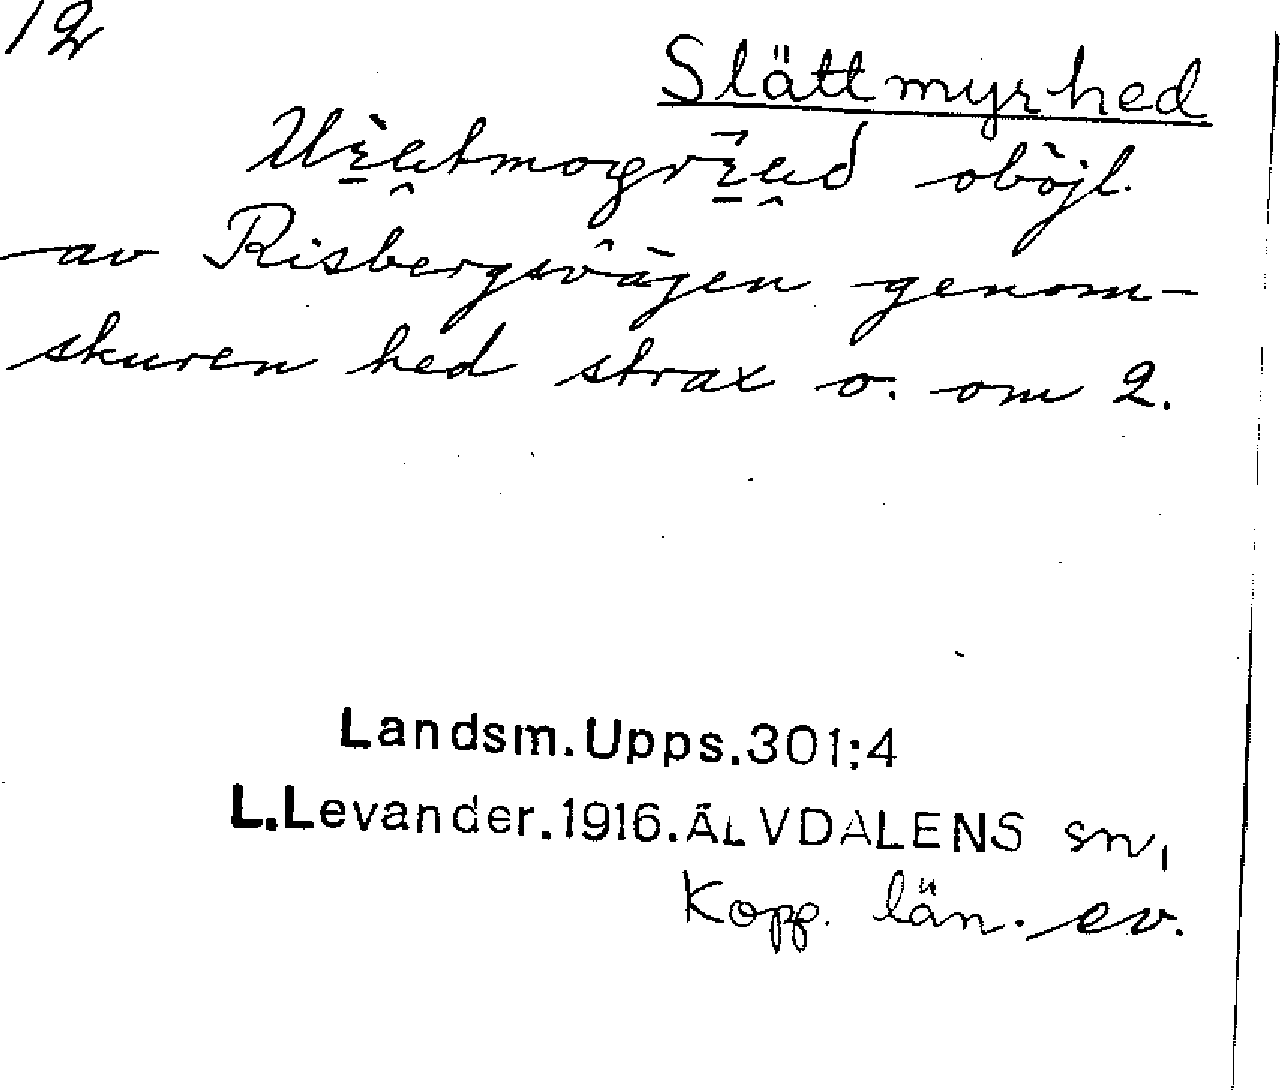 12
Slättmyrhed
oböjl.
av Risbergsvägen genom-
skuren hed strax o. om 2.
Landsm.Upps.301:4
L.Levander.1916.ÄLVDALENS sn,
Kopp. län. ev.